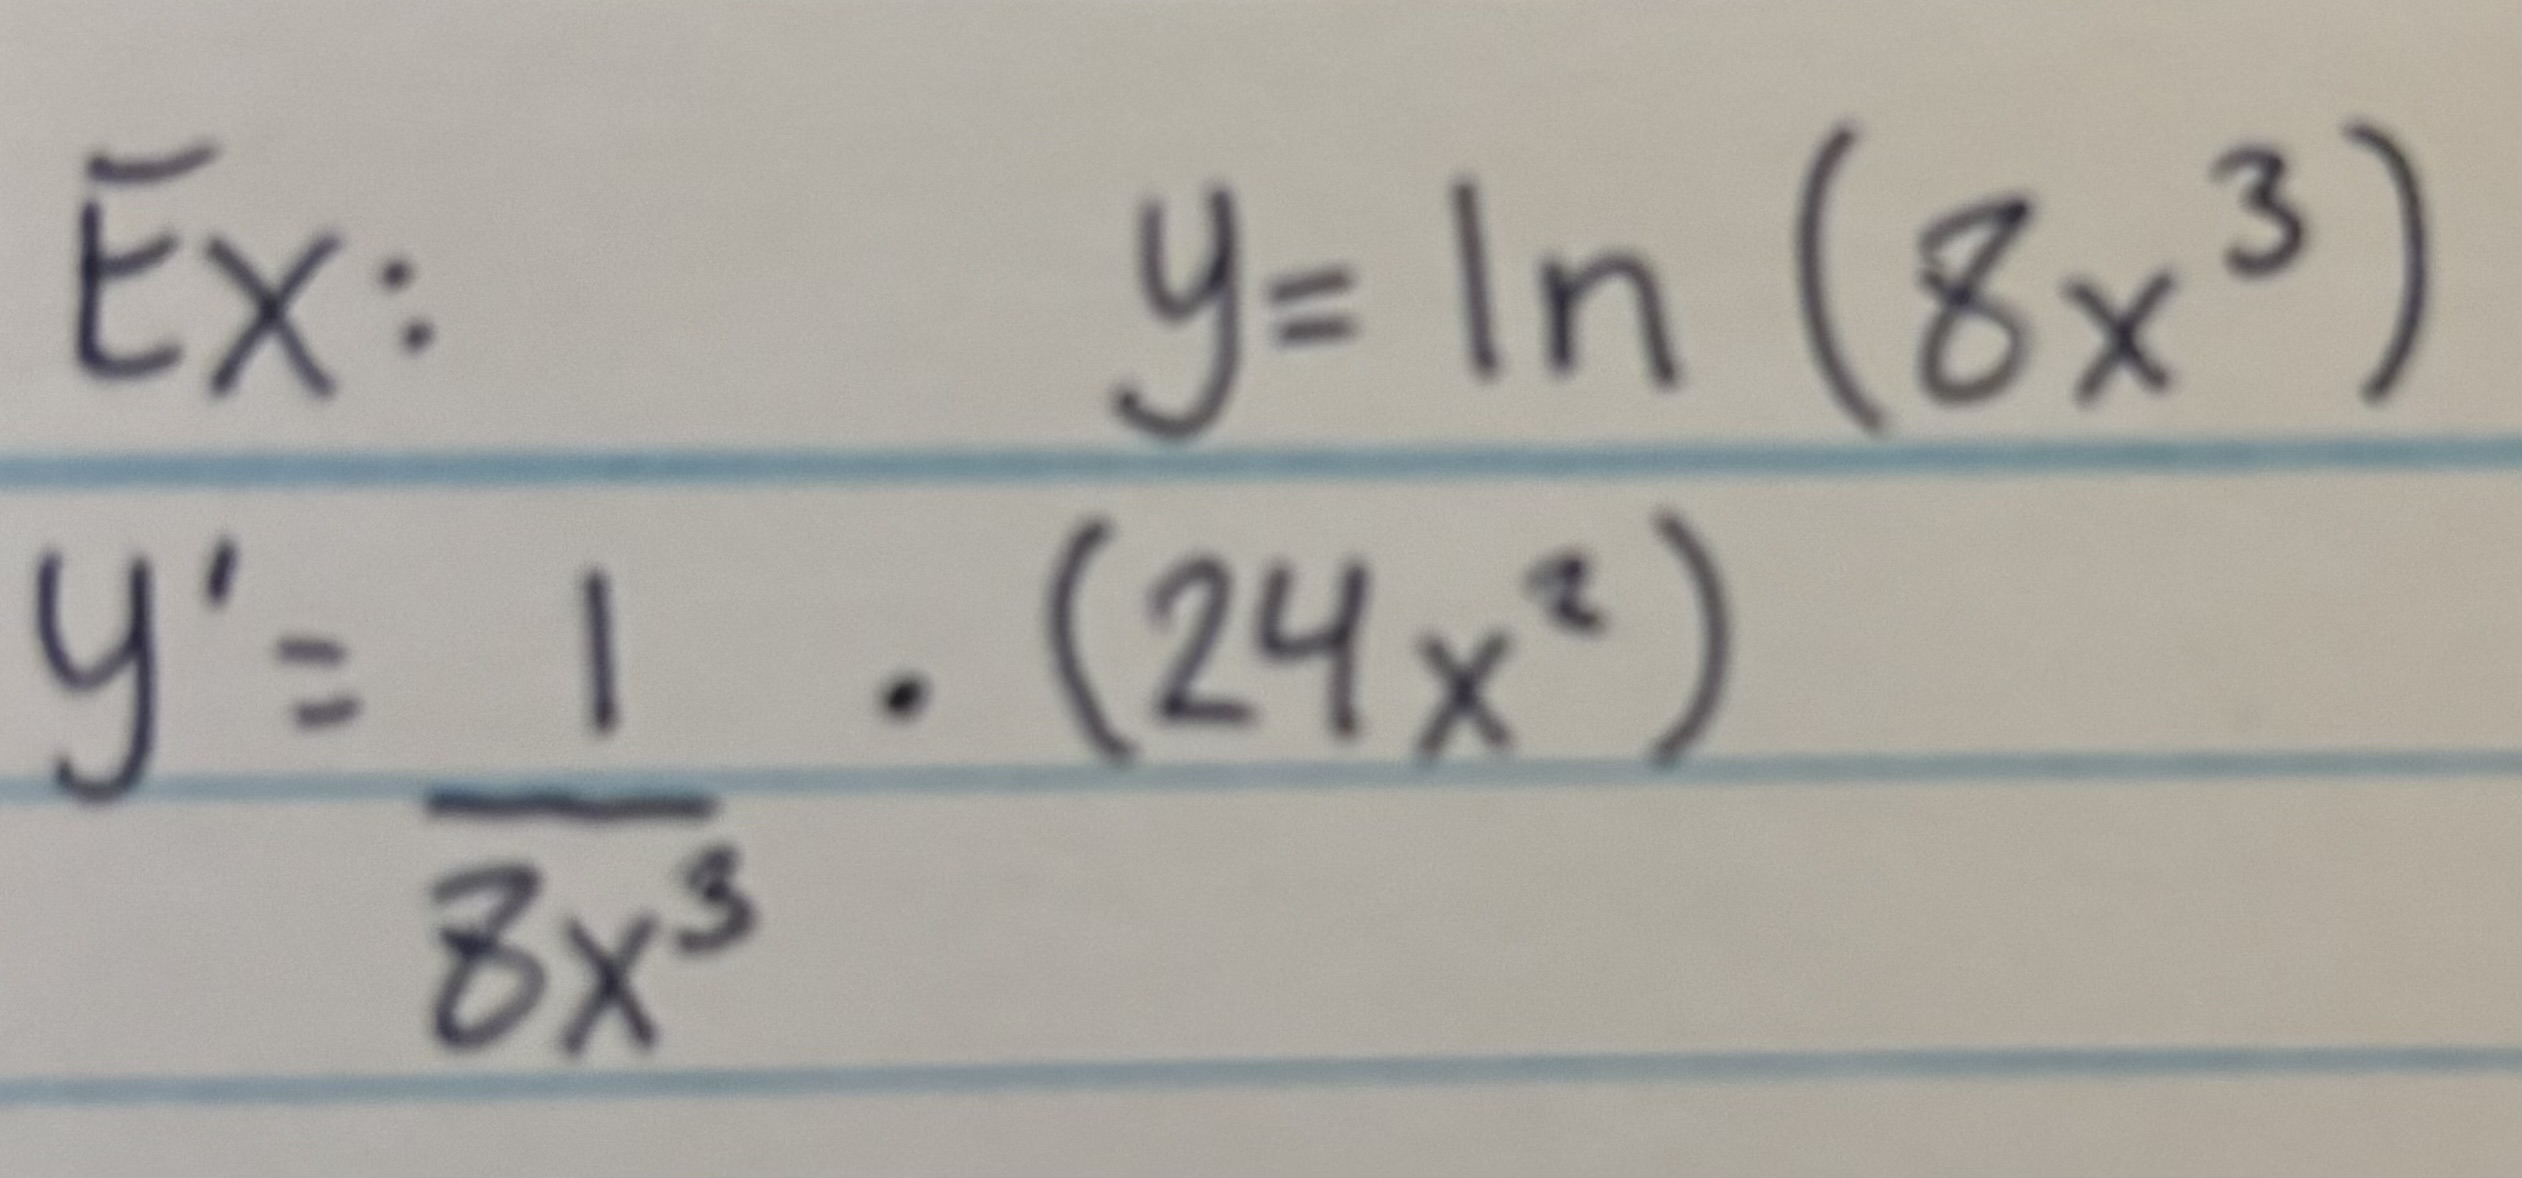 Ex: y = ln (8x³)
y' = 1/8x³ · (24x²)